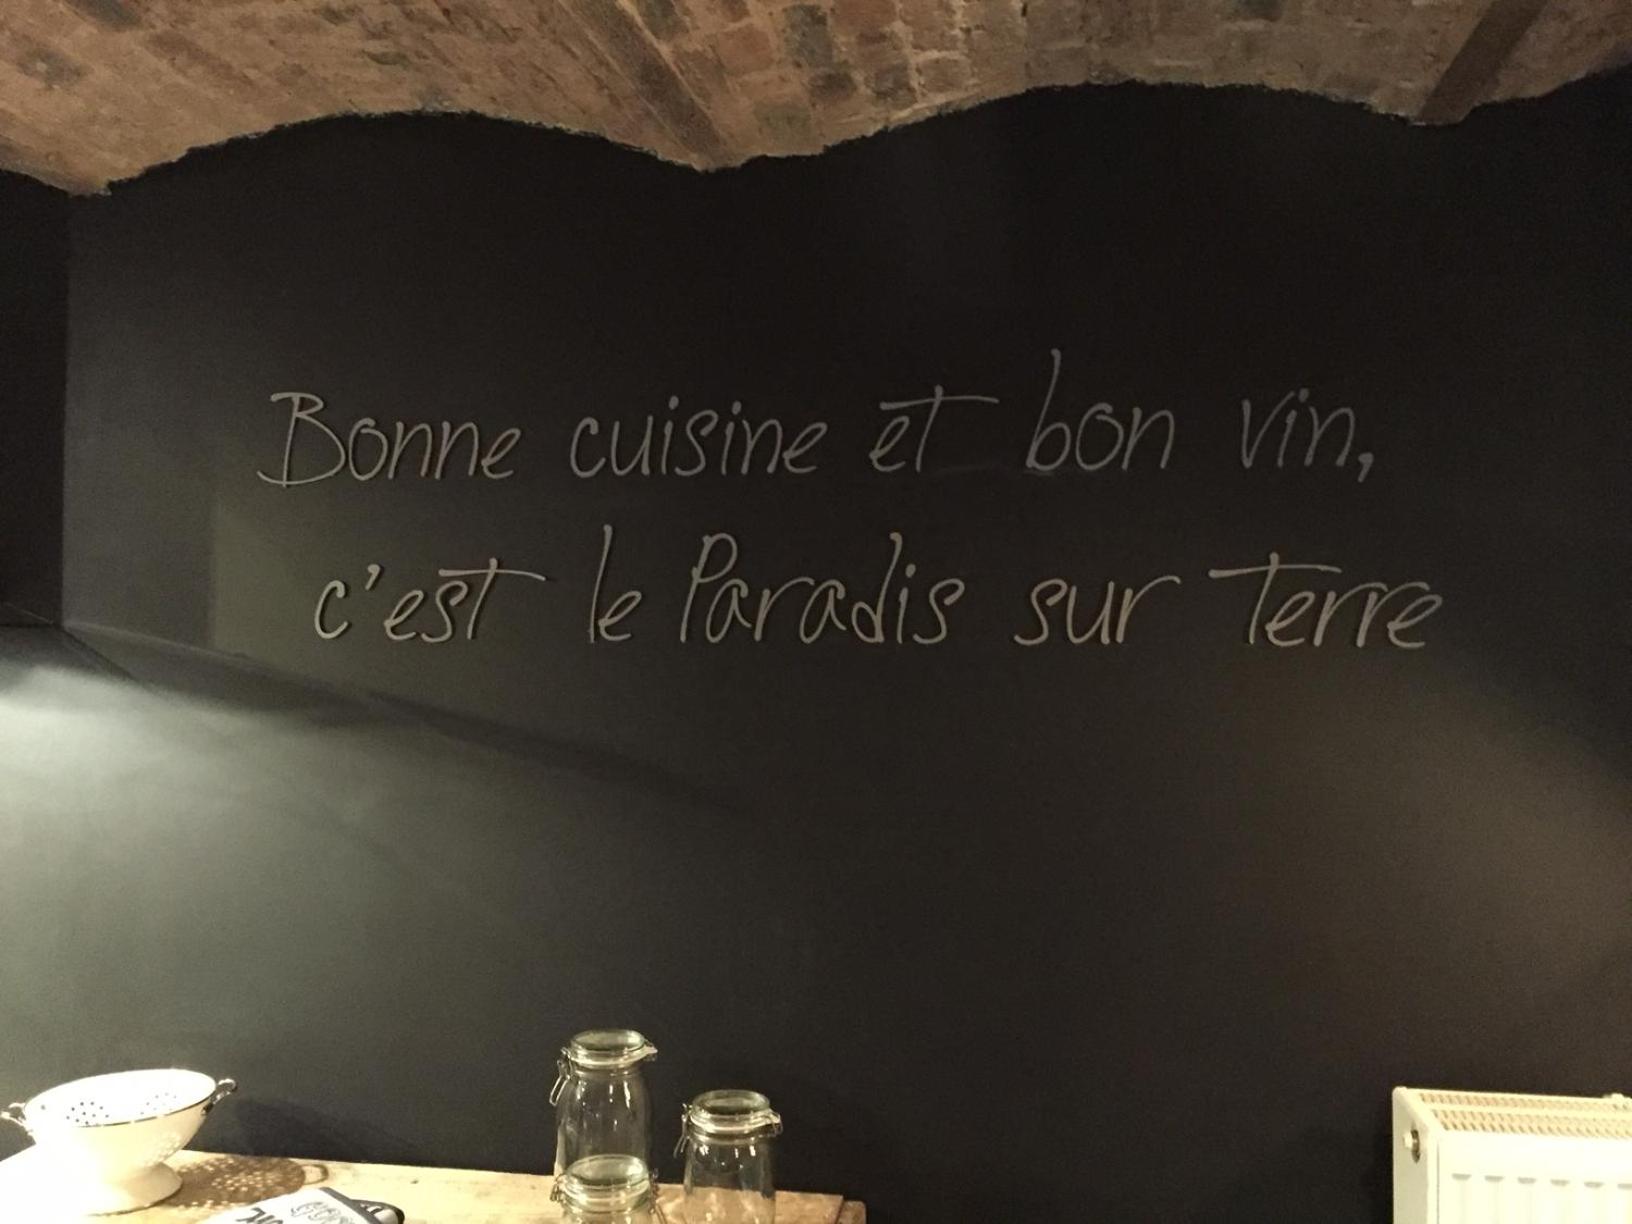 Bonne cuisine et bon vin,
c'est le Paradis sur terre